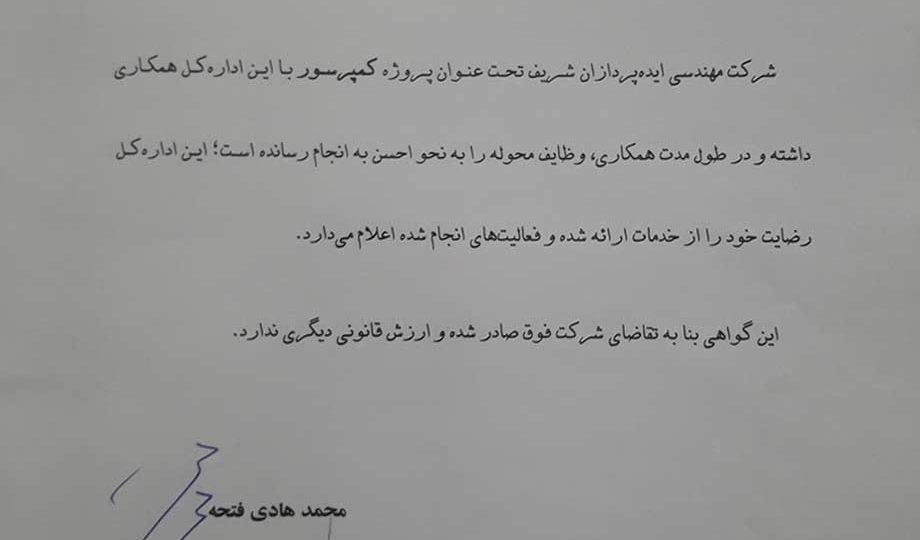 شرکت مهندسی ایده‌پردازان شریف تحت عنوان پروژه کمپرسور با این اداره‌کل همکاری
داشته و در طول مدت همکاری، وظایف محوله را به نحو احسن به انجام رسانده است؛ این اداره‌کل
رضایت خود را از خدمات ارائه شده و فعالیت‌های انجام شده اعلام می‌دارد.
این گواهی بنا به تقاضای شرکت فوق صادر شده و ارزش قانونی دیگری ندارد.
محمد هادی فتحه